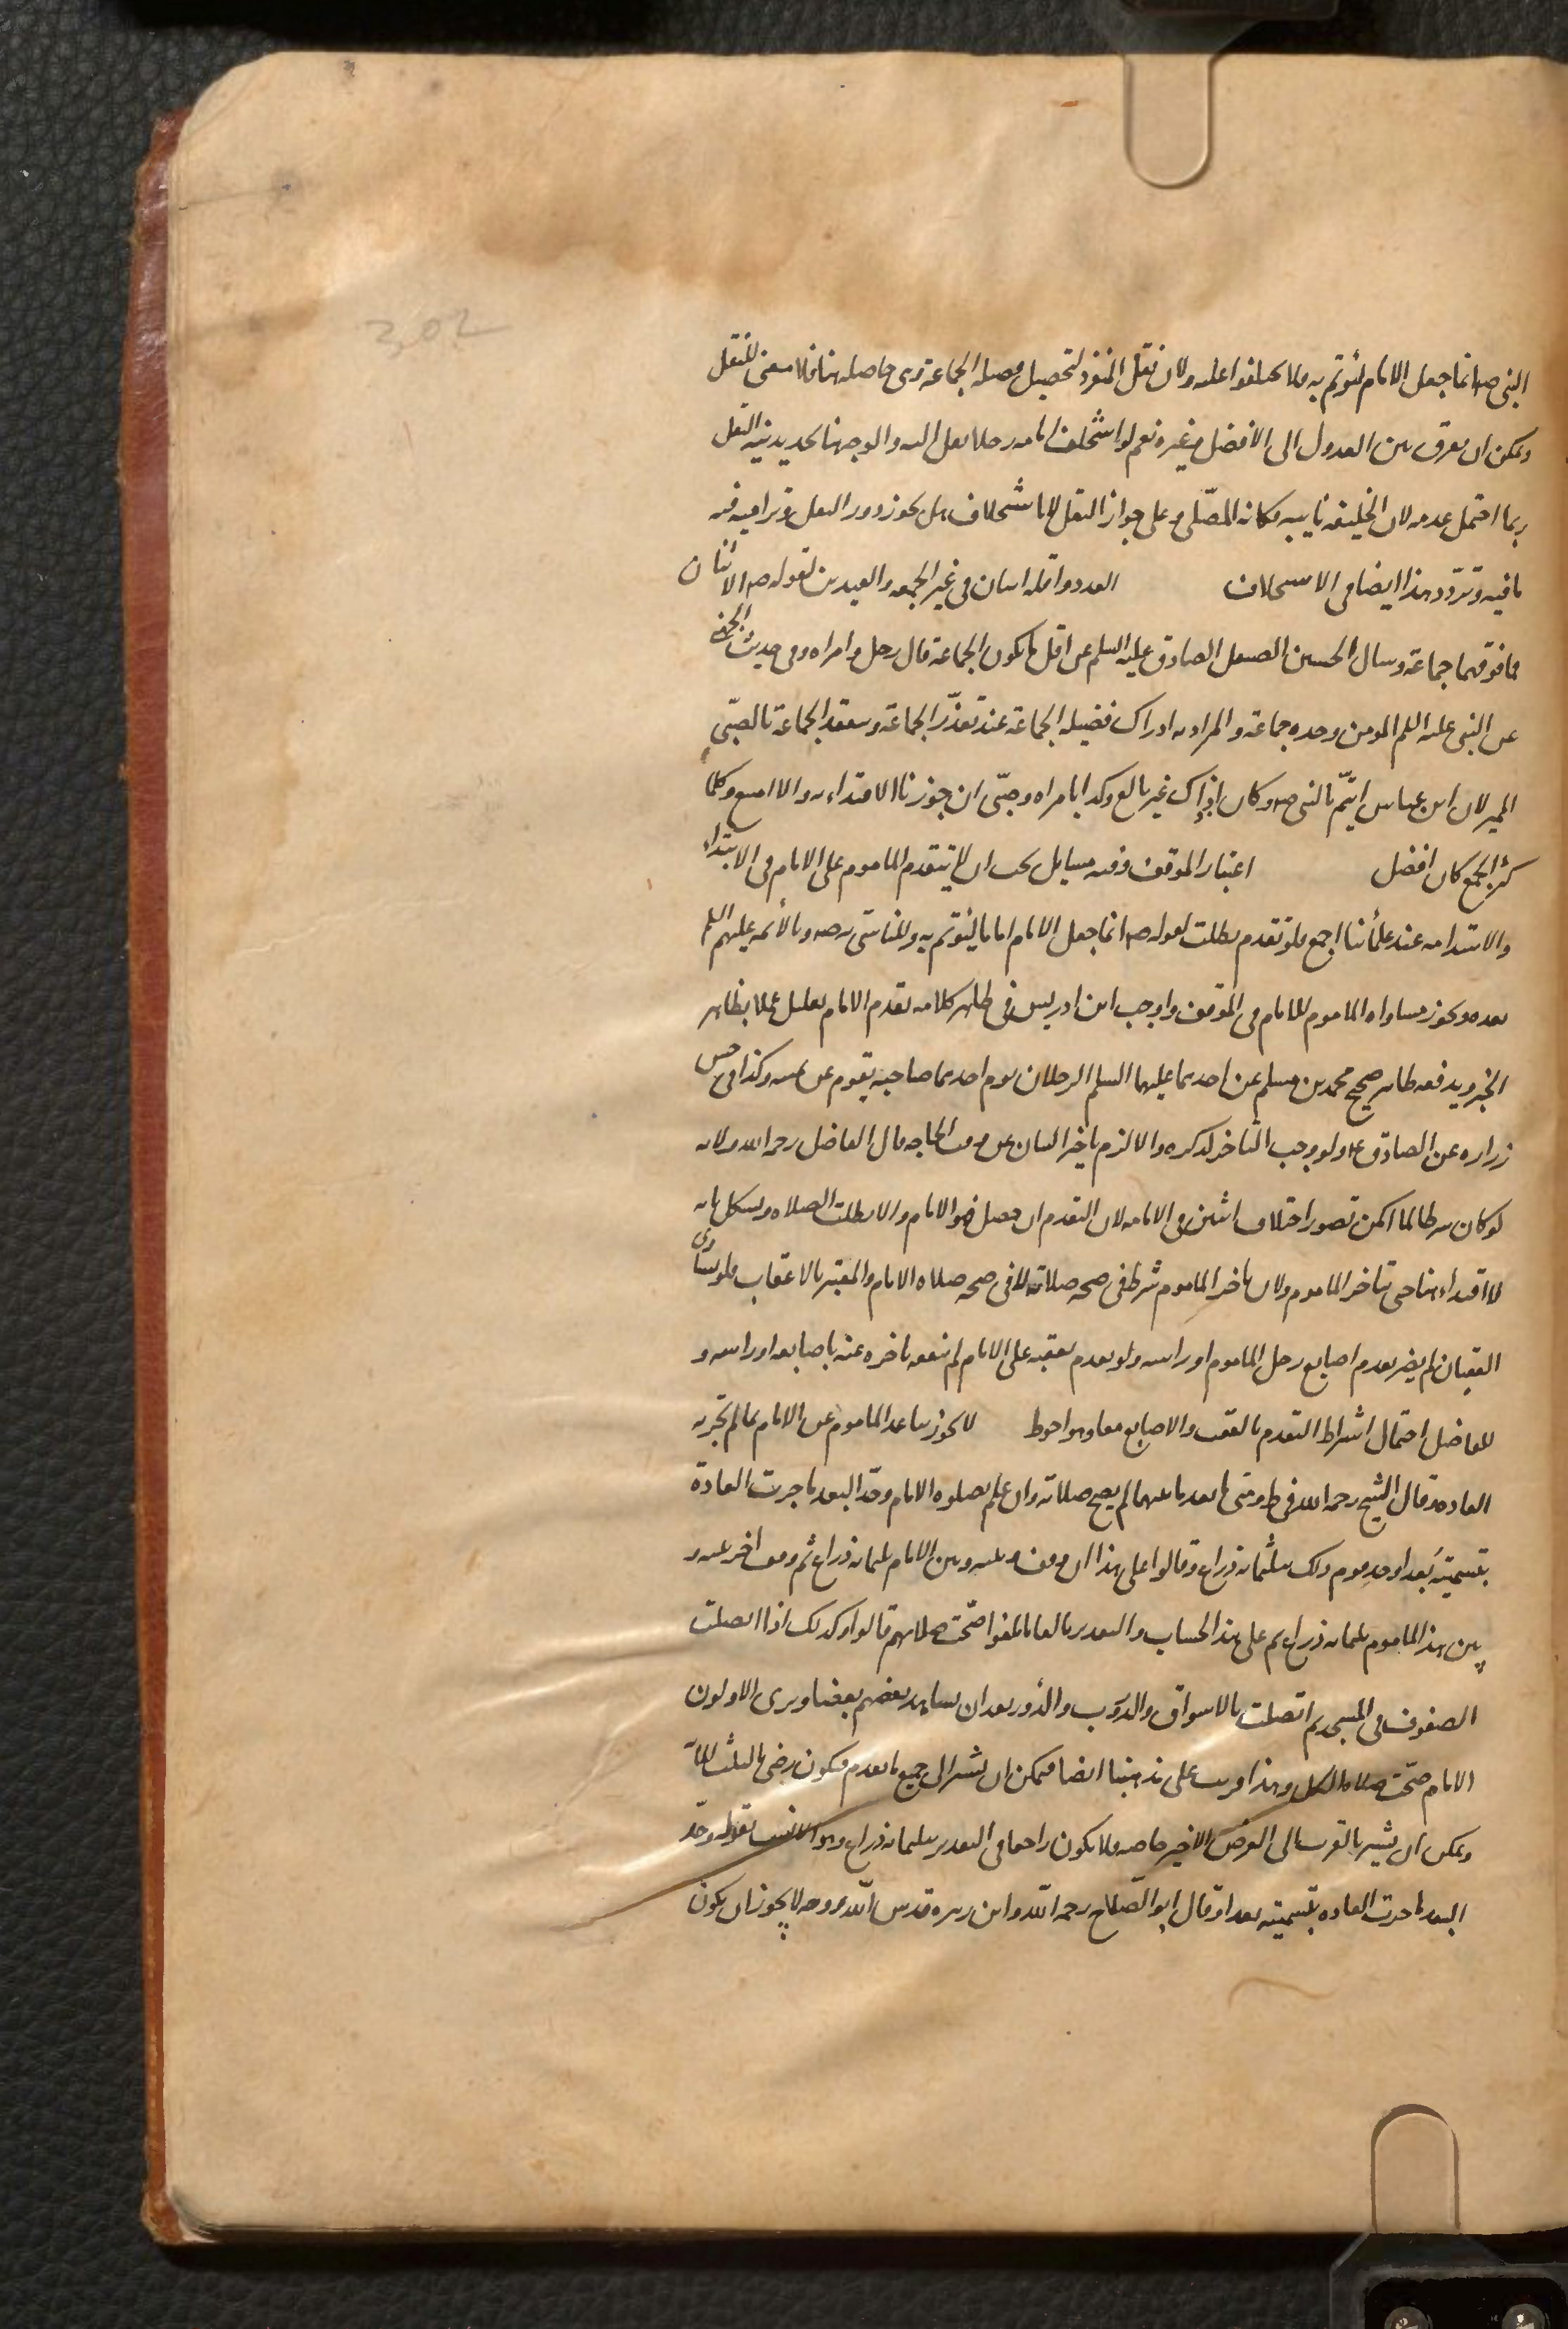 302
النبي صه انما جعل الامام ليؤتم به فلا تختلفوا عليه ولان نقل المنفرد لتحصيل فضيله الجماعة وهى حاصله هنا فلا معنى للنقل
ويمكن ان يفرق بين العدول الى الافضل وغيره نعم لو استخلف امامه رجلا نقل اليه والوجه هنا تجديد نية النقل
ربما احتمل عدمه لان الخليفه نايبه فكانه المصلّى وعلى جواز النقل للاستخلاف هل يجوز دور النقل وتراميه فيه
ما فيه وتردّد هذا ايضا فى الاستخلاف العدد واقله اثنان فى غير الجمعه والعيدين لقوله صه الاثنان
فما فوقهما جماعة وسال الحسين الصيقل الصادق عليه السلم عن اقل ما يكون الجماعة قال رجل وامراه وفى حديث الجهنى
عن النبى عليه السلم المومن وحده جماعة والمراد به ادراك فضيله الجماعة عند تعذّر الجماعة وينعقد الجماعة بالصبّى
المميز لان ابن عباس ايتمّ بالنبى صه وكان اذ ذاك غير بالغ وكذا بامراه وصبّى ان جوزنا الاقتداء به والا امتنع وكلما
كثر الجمع كان افضل اعتبار الموقف وفيه مسايل يجب ان لا يتقدم الماموم على الامام فى الابتداء
والاستدامه عند علمائنا اجمع فلو تقدم بطلت لقوله صه انما جعل الامام اماما ليؤتم به وللتاسّى به صه وبالأئمه عليهم السلم
بعده ويجوز مساواه الماموم للامام فى الموقف واوجب ابن ادريس فى ظاهر كلامه تقدم الامام بقليل عملا بظاهر
الخبر ويدفعه ظاهر صحيح محمد بن مسلم عن احدهما عليهما السلم الرجلان يوم احدهما صاحبه يقوم عن يمينه وكذا فى حسن
زراره عن الصادق عه ولو وجب التاخر لذكره والا لزم تاخير البيان عن وقت الحاجه قال الفاضل رحمه الله ولانه
لو كان شرطا لما امكن تصور اختلاف اثنين فى الامامه لان التقدم ان حصل فهو الامام والا بطلت الصلاه ويشكل بانه
لا اقتداء هنا حتى يتاخر الماموم ولان تاخر الماموم شرط فى صحه صلاته لا فى صحه صلاه الامام والمعتبر بالاعقاب فلو تساوى
العقبان لم يضر تقدم اصابع رجل الماموم او راسه ولو تقدم بعقبه على الامام لم ينفعه تاخره عنه باصابعه او راسه و
للفاضل احتمال اشتراط التقدم بالعقب والاصابع معا وهو احوط لا يجوز تباعد الماموم عن الامام بما لم تجر به
العاده وقال الشيخ رحمه الله فى ط ومتى ما بعد ما بينهما لم يصح صلاته وان علم بصلوه الامام وحّد البعد ما جرت العادة
بتسميته بُعدا وحد قوم ذلك بثلثمائه ذراع وقالوا على هذا ان وقف وبينه وبين الامام ثلثمائه ذراع ثم وقف اخر بينه و
بين هذا الماموم ثلثمائه ذراع ثم على هذا الحساب والتقدير بالغا ما بلغوا صّحت صلاتهم قالوا وكذلك اذا اتصلت
الصفوف فى المسجد ثم اتصلت بالاسواق والدروب والدُور بعد ان يشاهد بعضهم بعضا ويرى الاولون
الامام صحّت صلاه الكل وهذا قريب على مذهبنا ايضا فيمكن ان يشير الى جميع ما تقدم فيكون رضى بالثلثمائة
ويمكن ان يشير بالقرب الى الفرض الاخير خاصه فلا يكون راجعا فى التقدير بثلثمائه ذراع وهو الانسب بقوله وحّد
البعد ما جرت العاده بتسميته بعدا وقال ابو الصّلاح رحمه الله وابن زهره قدس الله روحه لا يجوز ان يكون